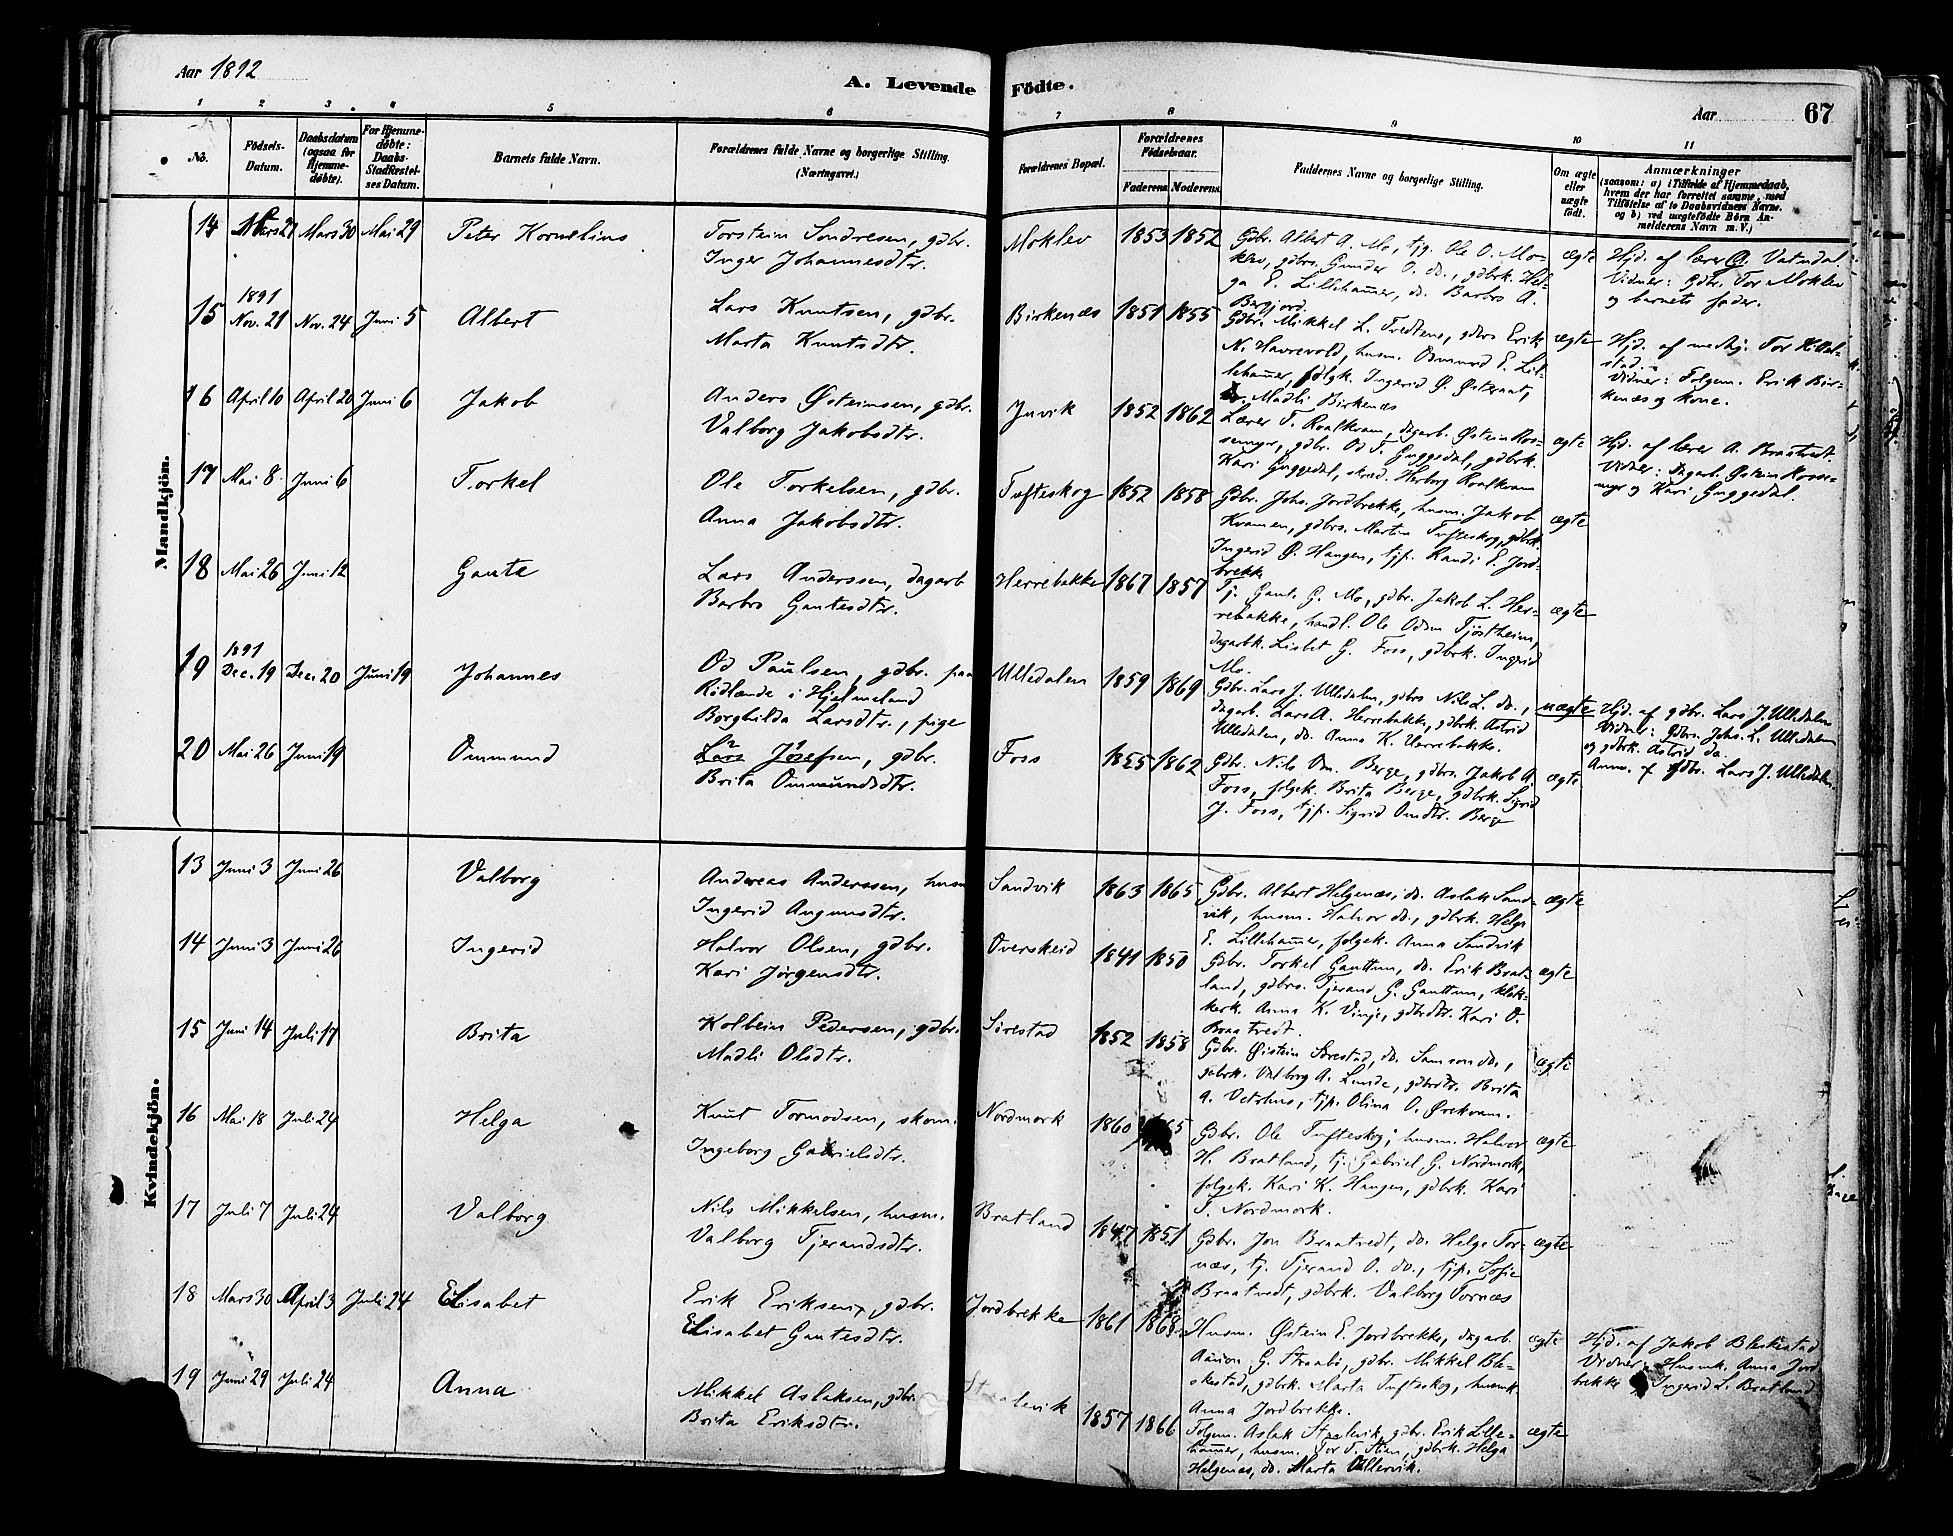 Aar 1892
A. Levende Födte.
Aar
67
1 2 3 4 5 6 7 8 9 10 11
No.
Födsels-Datum.
Daabsdatum (ogsaa for Hjemme-döbte).
For Hjemme-döbte: Daabs-Stadfæstel-ses Datum.
Barnets fulde Navn.
Forældrenes fulde Navne og borgerlige Stilling.
(Næringsvei.)
Forældrenes Bopæl.
Forældrenes Födselsaar.
Faderens. Moderens.
Faddernes Navne og borgerlige Stilling.
Om ægte eller uægte födt.
Anmærkninger
(saasom: a) i Tilfælde af Hjemmedaab,
hvem der har forrettet samme, med
Tilföielse af to Daabsvidners Navne.
og b) ved uægtefödte Börn An-
melderens Navn m. V.)
Mandkjön.
14 Mars 27 Mars 30 Mai 29 Peter Kornelius
Torstein Sondresen, gdbr.
Inger Johannesdtr.
Moklev 1853 1852
Gdbr. Albert A. Mo, tj. Ole O. Mo-
klev, gdbrs. Gunder O. do., gdbrk. Hel-
ga E. Lillehammer, do. Barbro A.
Bergjord.
ægte
Hjd. af lærer Ø. Vatndal.
Vidner: Gdbr. Tor Moklev
og barnets fader.
15 1891 Nov. 21 Nov. 24 Juni 5 Albert
Lars Knutsen, gdbr.
Marta Knutsdtr.
Birkenæs 1851 1855
Gdbr. Mikkel L. Tredtens, gdbrs Erik
N. Havrevold, husm. Osmund E. Lil-
lehammer, folgk. Ingerid Ø. Østeraat,
do. Madli Birkenæs
ægte
Vidner: Folgem. Erik Bir-
kenæs og kone.
16 April 10 April 20 Juni 6 Jakob
Anders Østeinsen, gdbr.
Valborg Jakobsdtr.
Juvik 1852 1862
Lærer T. Roalkvam, dagarb. Østein Ros-
semyr, gdbr. Od T. Guggedal, gdbrk.
Kari Guggedal, skræd. Herborg Roalkvam
ægte
Hjd. af lærer A. Braatveit.
Vidner: Dagarb. Østein Rosse-
myr og Kari Guggedal.
17 Mai 8. Juni 6 Torkel
Ole Torkelsen, gdbr.
Anna Jakobsdtr.
Tufteskog 1852 1858
Gdbr. Johs. Jordbrekke, husm. Jakob
Kvamen, gdbrs. Martin Tufteskog, gdbrk.
Ingerid Ø. Haugen, tjp. Randi E. Jord-
brekke
ægte
18 Mai 26 Juni 12 Gaute
Lars Anderssen, dagarb
Barbro Gautesdtr.
Herrebakke 1867 1857
Tj. Gaut. G. Mo, gdbr. Jakob L. Her-
rebakke, handl. Ole Odsen Tjøstheim,
dagarbk. Lisbet G. Foss, gdbrk. Ingrid
Mo.
ægte
19 1891 Dec. 19 Dec. 20 Juni 19 Johannes
Od Paulsen, gdbr. paa
Ridlande i Hjelmeland
Borghilda Larsdtr., pige
Ulledalen 1859 1869
Gdbr. Lars J. Ulledalen, gdbrs Nils L. do.,
dagarb. Lars A. Herrebakke, gdbrk. Astrid
Ulledalen, do. Anna K. Herrebakke.
uægte
Hjd. af gdbr. Lars J. Ulledalen
Vidner: gdbrs. Johs. L. Ulledalen
og gdbrk. Astrid do.
Anm. f gdbr. Lars J. Ulledalen.
20 Mai 26 Juni 19 Ommund
Lars Josefsen, gdbr.
Brita Ommundsdtr.
Foss 1855 1862
Gdbr. Nils Om. Berge, gdbrs. Jakob A.
Foss, folgek. Brita Berge, gdbrk. Sigrid
J. Foss, tjp. Sigrid Omdtr. Berge
ægte
Kvindekjön.
13 Juni 3 Juni 26 Valborg
Andreas Anderssen, husm
Ingerid Aagumsdtr.
Sandvik 1863 1865
Gdbr. Albert Helgenæs, do. Aslak Sand-
vik, husm. Halvor do., gdbrk. Helga
E. Lillehammer, folgek. Anna Sandvik
ægte
14 Juni 3 Juni 26 Ingerid
Halvor Olsen, gdbr.
Kari Jørgensdtr.
Overskeid 1841 1850
Gdbr. Torkel Gauttun, do. Erik Brat-
land, gdbrs. Tjerand G. Gauttun, klok-
kerk. Anna K. Vinje, gdbrdtr. Kari O.
Braatvedt.
ægte
15 Juni 14 Juli 17 Brita
Kolbein Pedersen, gdbr.
Madli Olsdtr.
Sørestad 1852 1858
Gdbr. Øistein Sørestad, do. Samson do.,
gdbrk. Valborg A. Lunde, gdbrdtr. Brita
A. Vetrhus, tjp. Olina O. Ørekvam.
ægte
16 Mai 18 Juli 24 Helga
Knut Tormodsen, skom.
Ingeborg Gabrielsdtr.
Nordmork 1860
Gdbr. Ole Tufteskog, husm. Halvor
H. Bratland, tj. Gabriel G. Nordmork,
folgek. Kari K. Haugen, gdbrk. Kari
T. Nordmork.
ægte
17 Juli 7 Juli 24 Valborg
Nils Mikkelsen, husm.
Valborg Tjerandsdtr.
Bratland 1847 1851
Gdbr. Jon Braatvedt, do. Helge Tor-
næs, tj. Tjerand O. do., tjp. Sofie
Braatvedt, gdbrk. Valborg Tornæs
ægte
18 Mars 30 April 3 Juli 24 Elisabet
Erik Eriksen, gdbr.
Elisabet Gautesdtr.
Jordbrekke 1861 1868
Husm. Østein E. Jordbrekke, dagarb.
Aanon G. Straabø, gdbr. Mikkel Ble-
skestad, gdbrk. Marta Tufteskog, husmk.
Anna Jordbrekke.
ægte
Hjd. af Jakob Bleskestad
Vidner: Husmk. Anna Jord
brekke Ingerid L. Bratland
19 Juni 29 Juli 24 Anna
Mikkel Aslaksen, gdbr.
Brita Eriksdtr.
1857 1866
Folgem. Aslak Straalevik, gdbr. Erik Lille-
hammer, husm. Tor T. Stien, gdbrk. Helga
Helgenæs, do. Marta Ullervik.
ægte